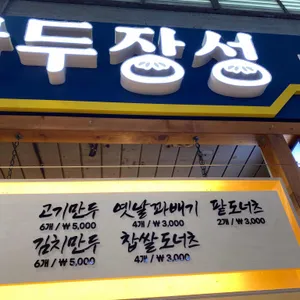 두장성
고기만두 옛날꽈배기 팥도너츠
6개 / ₩ 5,000 4개 / ₩ 3,000 2개 / ₩ 3,000
김치만두 찹쌀도너츠
6개 / ₩ 5,000 4개 / ₩ 3,000